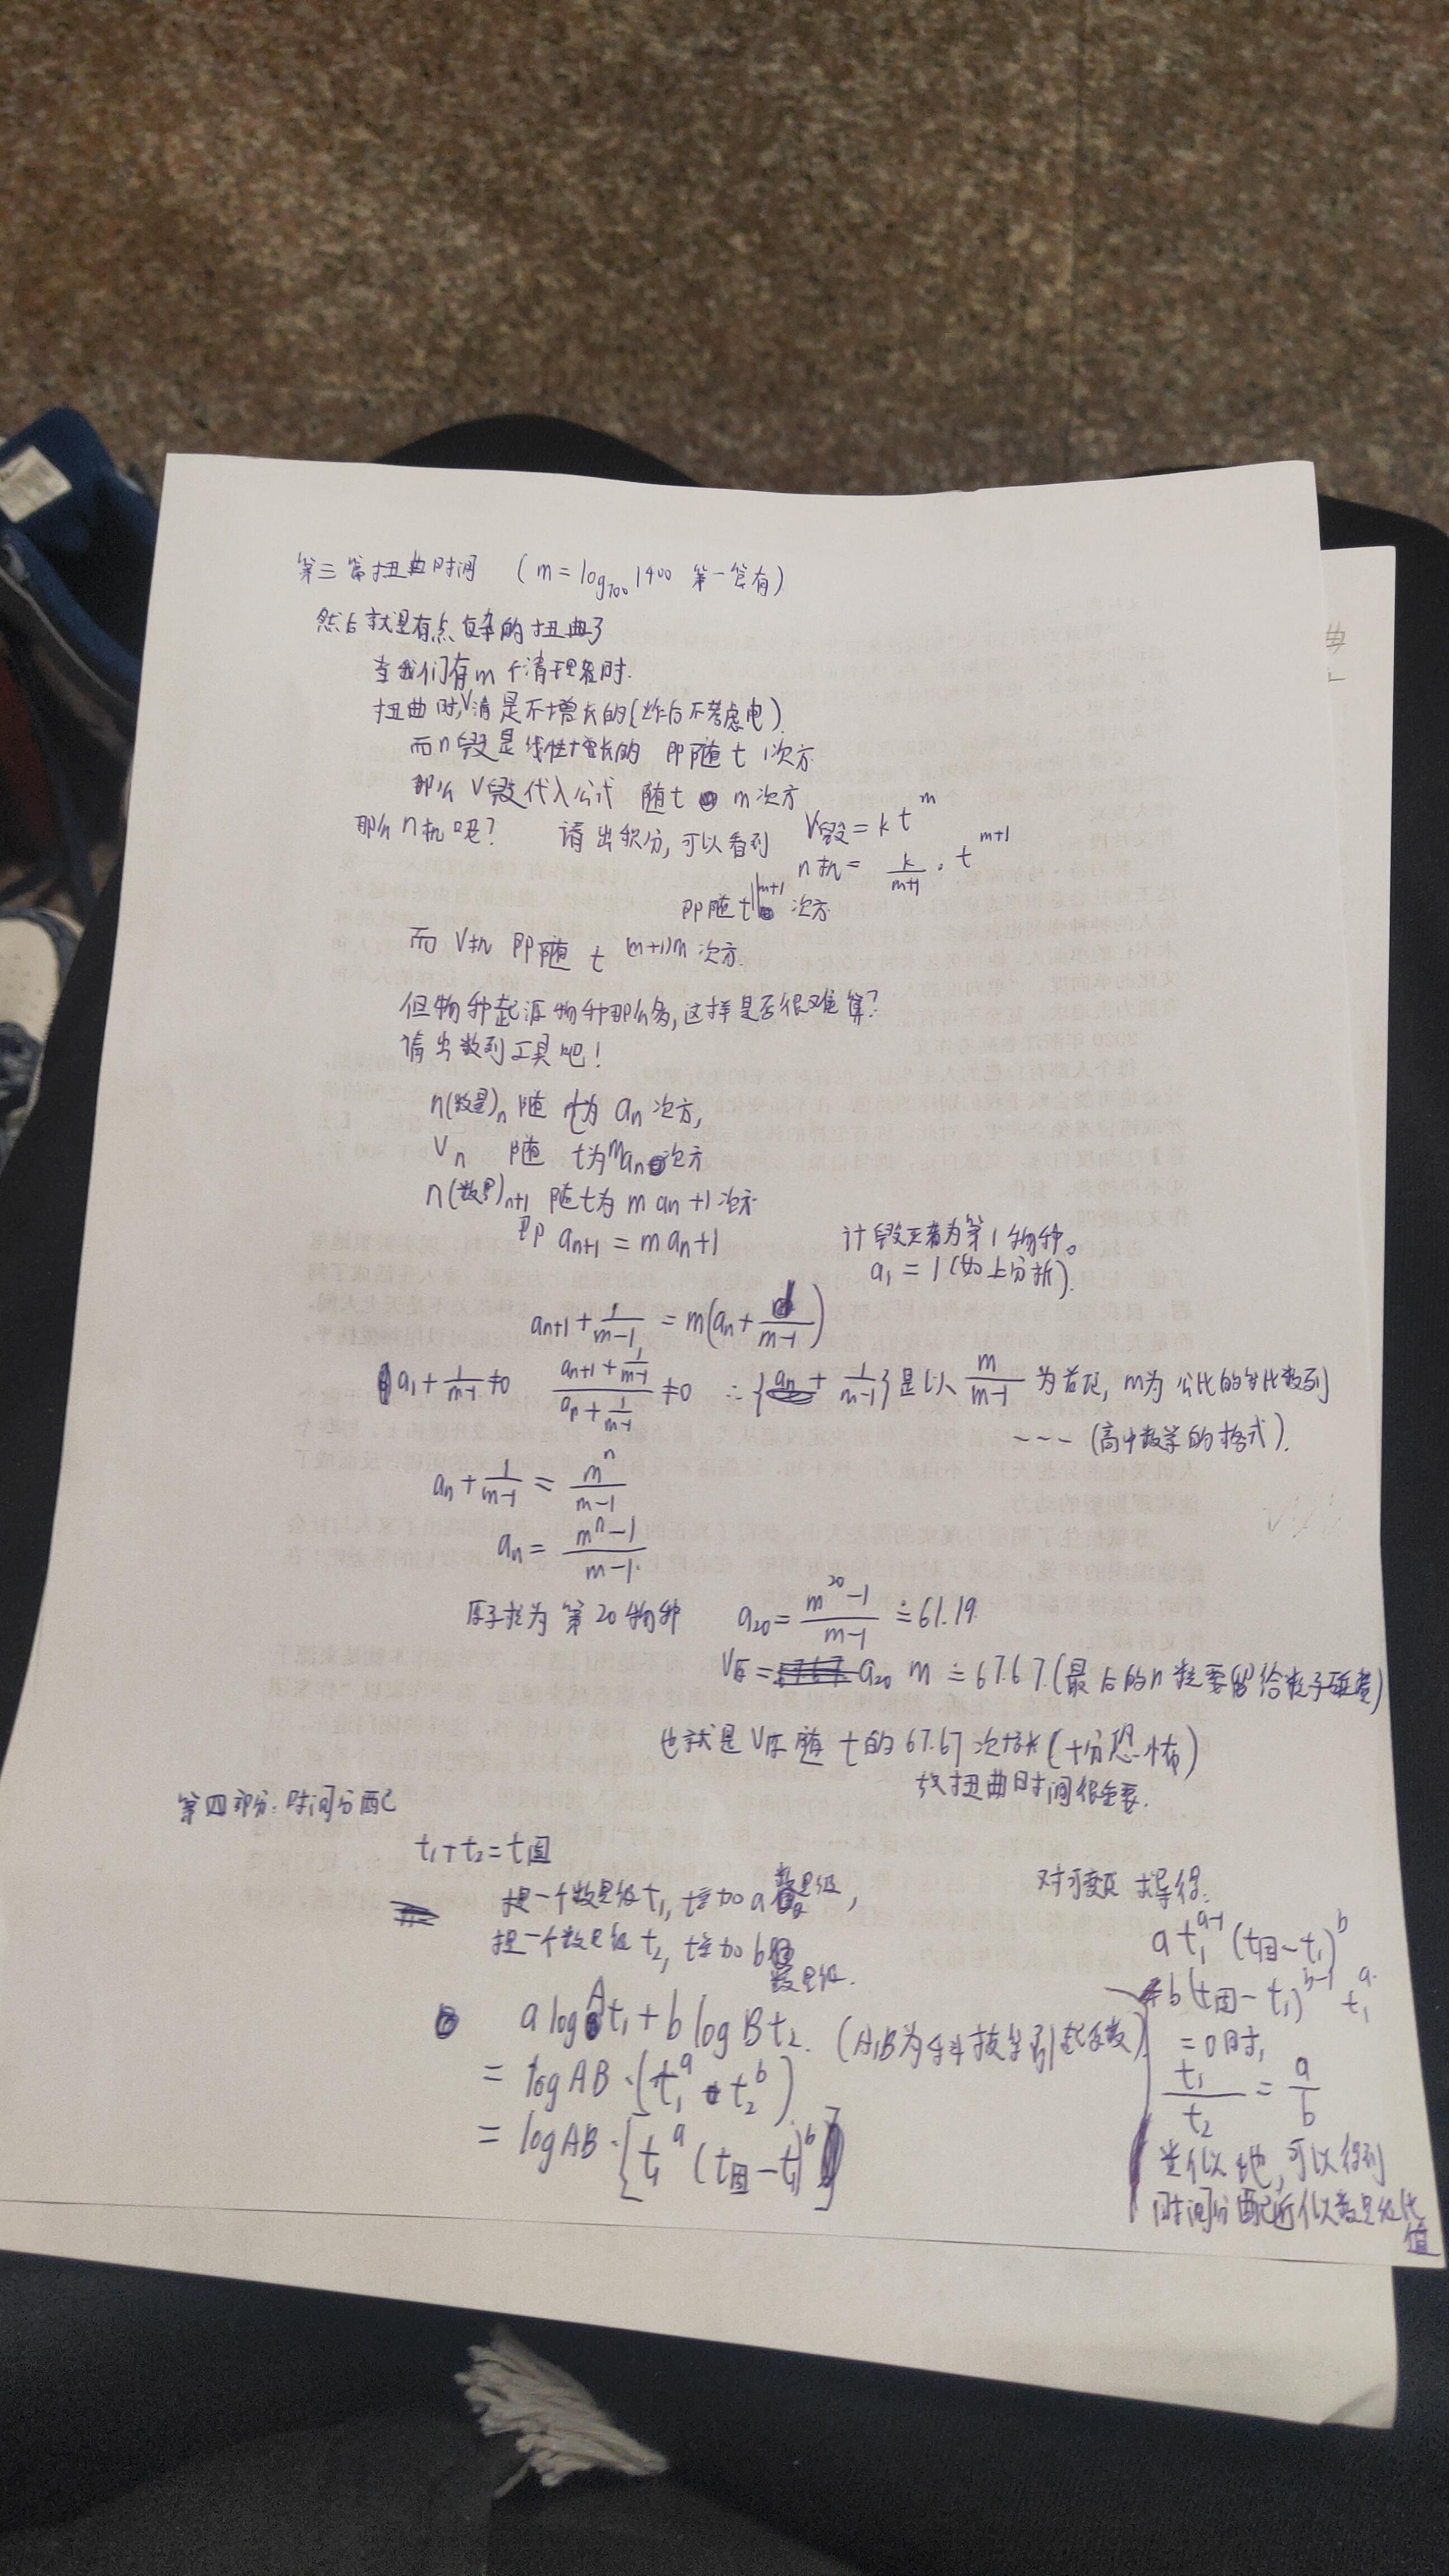 第三篇扭曲时间 (m = log₇₀₀ 1400 第一篇有)
然后就是有点复杂的扭曲了
当我们有m个清理者时.
扭曲时,V清是不增长的(炸后不考虑电)
而n毁是线性增长的 即随t 1次方
那么V毁代入公式 随t m次方
那么n机呢? 请出积分,可以看到 V毁=k t^m
n机= k/(m+1) · t^(m+1)
即随t m+1次方
而V机即随t (m+1)m次方.
但物种起源物种那么多,这样是否很难算?
请出数列工具吧!
n(数量)ₙ随t为aₙ次方,
Vₙ 随t为maₙ次方
n(数量)ₙ₊₁随t为maₙ+1次方
即 aₙ₊₁=maₙ+1 计毁灭者为第1物种。
a₁=1(如上分析).
aₙ₊₁+1/(m-1)=m(aₙ+1/(m-1))
a₁+1/(m-1)≠0 (aₙ₊₁+1/(m-1))/(aₙ+1/(m-1))≠0 ∴{aₙ+1/(m-1)}是以m/(m-1)为首项,m为公比的等比数列
---(高中数学的格式).
aₙ+1/(m-1)=mⁿ/(m-1)
aₙ=(mⁿ-1)/(m-1).
原子 为第20物种 a₂₀=(m²⁰-1)/(m-1)≐61.19
V原=a₂₀m≐67.67.(最后的n 要留给粒子 )
也就是V原随t的67.67次增长(十分恐怖)
故扭曲时间很重要.
第四部分:时间分配
t₁+t₂=t固
提一个数量级t₁,增加a数量级,
提一个数量级t₂,增加b数量级.
a log A t₁+b log B t₂.(A,B为 引起 数)
=log AB·(t₁ᵃ·t₂ᵇ)
=log AB·[t₁ᵃ(t固-t₁)ᵇ]
对 求导得:
a t₁^(a-1)(t固-t₁)^b
-b(t固-t₁)^(b-1) t₁^a
=0时,
t₁/t₂=a/b
类似地,可以得到
时间分配近似数量级比值